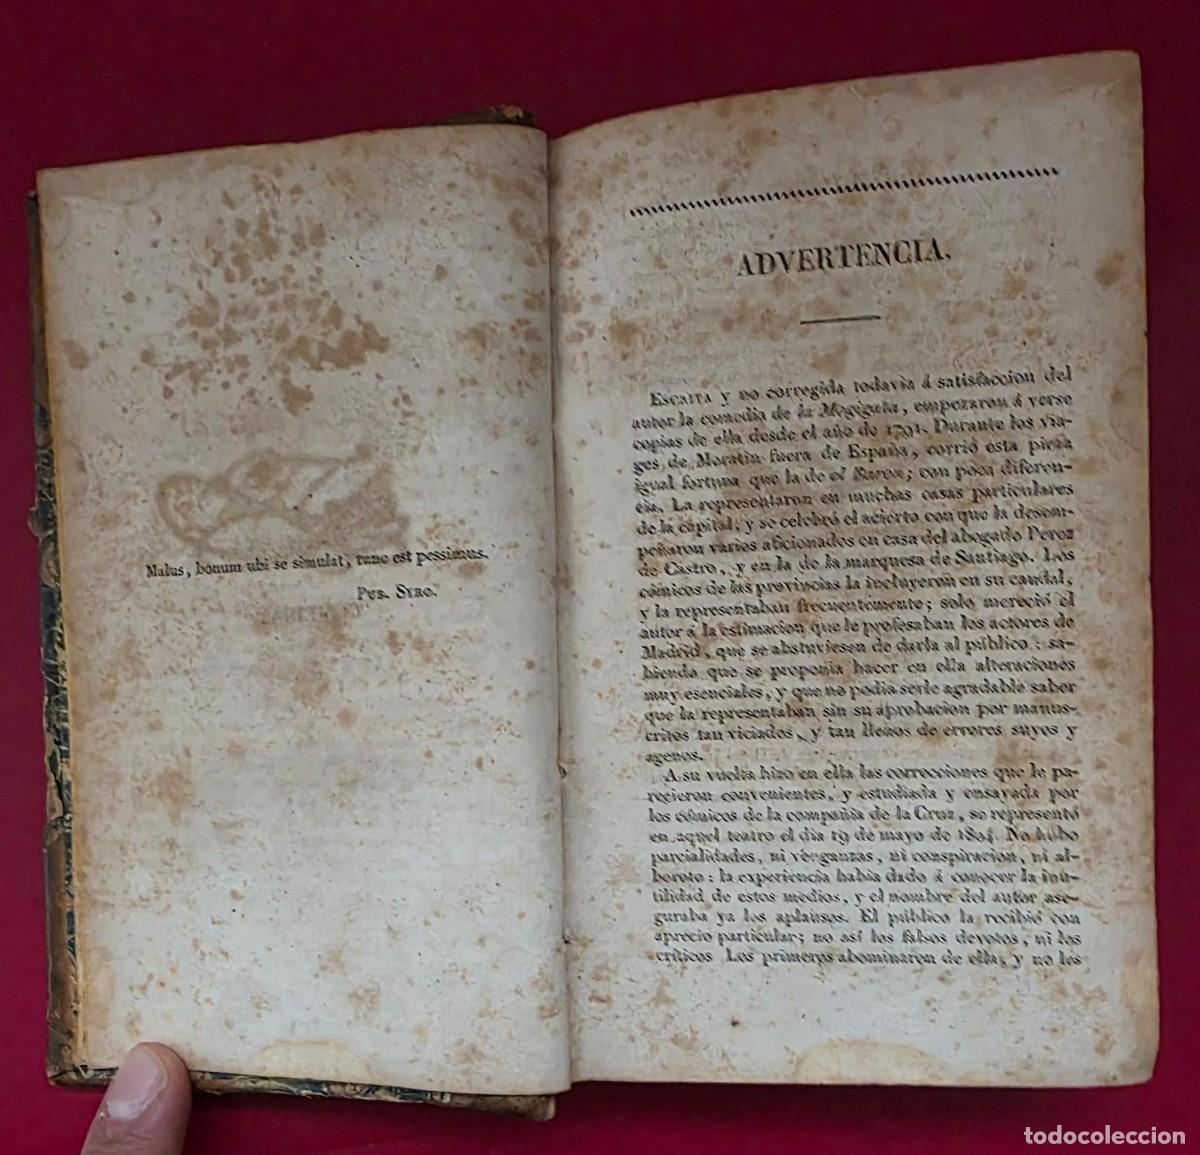 Malus, bonum ubi se simulat, tunc est pessimus.
Pub. Syro.
ADVERTENCIA.
Escrita y no corregida todavia á satisfaccion del
autor la comedia de la Mogigata, empezaron á verse
copias de ella desde el año de 1791. Durante los via-
ges de Moratin fuera de España, corrió esta pieza
igual fortuna que la de el Baron; con poca diferen-
cia. La representaron en muchas casas particulares
de la capital, y se celebró el acierto con que la desem-
peñaron varios aficionados en casa del abogado Perez
de Castro, y en la de la marquesa de Santiago. Los
cómicos de las provincias la incluyeron en su caudal,
y la representaban frecuentemente; solo mereció el
autor á la estimacion que le profesaban los actores de
Madrid, que se abstuviesen de darla al público: sa-
biendo que se proponia hacer en ella alteraciones
muy esenciales, y que no podia serle agradable saber
que la representaban sin su aprobacion por manus-
critos tan viciados, y tan llenos de errores suyos y
agenos.
A su vuelta hizo en ella las correcciones que le pa-
recieron convenientes, y estudiada y ensayada por
los cómicos de la compañía de la Cruz, se representó
en aquel teatro el dia 19 de mayo de 1804. No hubo
parcialidades, ni venganzas, ni conspiracion, ni al-
boroto: la experiencia habia dado á conocer la inu-
tilidad de estos medios, y el nombre del autor ase-
guraba ya los aplausos. El público la recibió con
aprecio particular; no así los falsos devotos, ni los
críticos Los primeros abominaron de ella, y no les
todocoleccion